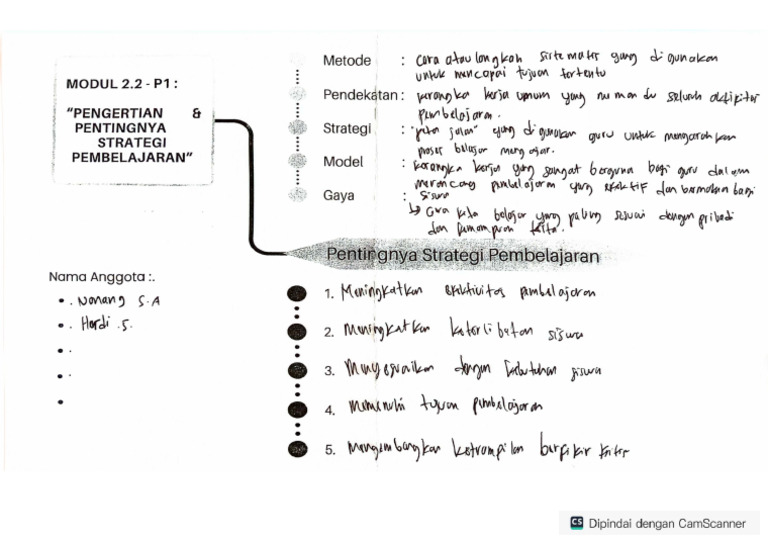 MODUL 2.2 - P1 :
"PENGERTIAN &
PENTINGNYA
STRATEGI
PEMBELAJARAN"
Metode : Cara atau langkah sistematis yang digunakan
untuk mencapai tujuan tertentu
Pendekatan : kerangka kerja umum yang memandu seluruh aktifitas
pembelajaran.
Strategi : "peta jalan" yang digunakan guru untuk mengarahkan
proses belajar mengajar.
Model : kerangka kerja yang sangat berguna bagi guru dalam
merancang pembelajaran yang efektif dan bermakna bagi
Gaya : siswa
↳ Cara kita belajar yang paling sesuai dengan pribadi
dan kita.
Pentingnya Strategi Pembelajaran
Nama Anggota :.
• . Nonang S.A
• . Hardi .S.
1. Meningkatkan efektivitas pembelajaran
2. Meningkatkan keterlibatan siswa
3. Menyesuaikan dengan kebutuhan siswa
4. Memenuhi tujuan pembelajaran
5. Mengembangkan ketrampilan berfikir kritis
CS Dipindai dengan CamScanner